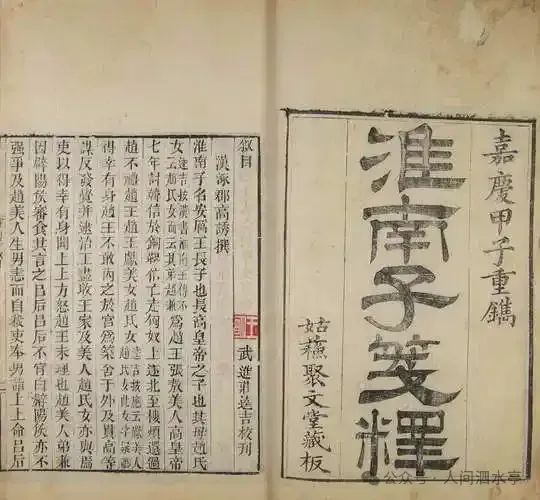 嘉慶甲子重鐫
淮南子箋釋
姑蘇聚文堂藏板
敘目
武進莊逵吉校刊
漢涿郡高誘撰
淮南子名安厲王長子也長高皇帝之子也其母趙氏
女逵吉按漢書淮南王傳不云趙氏女而云其弟趙兼爲趙王張敖美人高皇帝
七年討韓信於銅鞮信亡走匈奴上遂北至樓煩還過
趙不禮趙王趙王獻美女趙氏女
得幸有身趙王不敢內之於宮爲築舍于外及貫高等
謀反發覺并逮治王盡收王家及美人趙氏女亦與焉
吏以得幸有身聞上上方怒趙王未理也趙美人弟兼
因辟陽侯審食其言之呂后呂后不肯白辟陽侯亦不
强爭及趙美人生男恚而自殺吏奉男詣上上命呂后
公众号·人间泗水亭